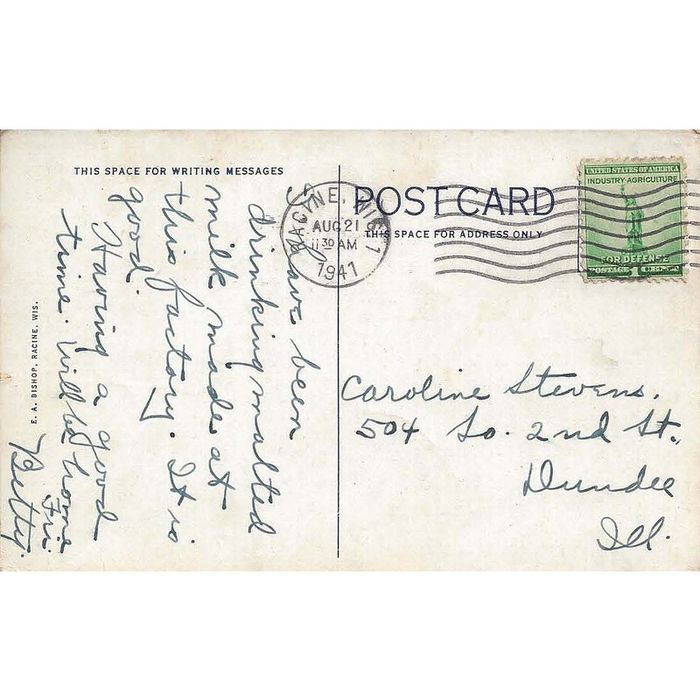 THIS SPACE FOR WRITING MESSAGES
I have been
drinking malted
milk made at
this factory. It is
good.
Having a good
time. Will be home
Fri.
Betty
E. A. BISHOP, RACINE, WIS.
POST CARD
THIS SPACE FOR ADDRESS ONLY
RACINE, WIS. 1
AUG 21
11 30 AM
1941
UNITED STATES OF AMERICA
INDUSTRY·AGRICULTURE
FOR DEFENSE
POSTAGE 1
Caroline Stevens.
504 So. 2nd St.
Dundee
Ill.